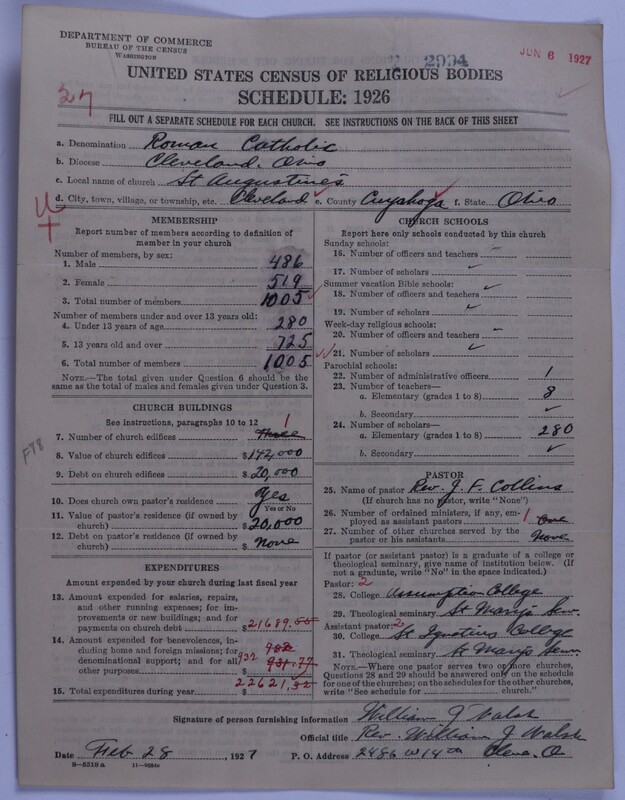 DEPARTMENT OF COMMERCE
BUREAU OF THE CENSUS
WASHINGTON
2994
JUN 6 1927
UNITED STATES CENSUS OF RELIGIOUS BODIES
27
SCHEDULE: 1926
FILL OUT A SEPARATE SCHEDULE FOR EACH CHURCH. SEE INSTRUCTIONS ON THE BACK OF THIS SHEET
a. Denomination Roman Catholic
b. Diocese Cleveland, Ohio
c. Local name of church St Augustine's
d. City, town, village, or township, etc. Cleveland e. County Cuyahoga f. State Ohio
MEMBERSHIP
Report number of members according to definition of
member in your church
Number of members, by sex:
1. Male 486
2. Female 519
3. Total number of members 1005
Number of members under and over 13 years old:
4. Under 13 years of age 280
5. 13 years old and over 725
6. Total number of members 1005
NOTE.—The total given under Question 6 should be
the same as the total of males and females given under Question 3.
CHURCH BUILDINGS
See instructions, paragraphs 10 to 12
7. Number of church edifices Three 1
8. Value of church edifices $142,000
9. Debt on church edifices $20,000
10. Does church own pastor's residence yes
Yes or No
11. Value of pastor's residence (if owned by
church) $20,000
12. Debt on pastor's residence (if owned by
church) $ None
EXPENDITURES
Amount expended by your church during last fiscal year
13. Amount expended for salaries, repairs,
and other running expenses; for im-
provements or new buildings; and for
payments on church debt $21689.55
14. Amount expended for benevolences, in-
cluding home and foreign missions; for
denominational support; and for all
other purposes 932 931.77
15. Total expenditures during year $22621.32
CHURCH SCHOOLS
Report here only schools conducted by this church
Sunday schools:
16. Number of officers and teachers
17. Number of scholars
Summer vacation Bible schools:
18. Number of officers and teachers
19. Number of scholars
Week-day religious schools:
20. Number of officers and teachers
21. Number of scholars
Parochial schools:
22. Number of administrative officers 1
23. Number of teachers—
a. Elementary (grades 1 to 8) 8
b. Secondary
24. Number of scholars—
a. Elementary (grades 1 to 8) 280
b. Secondary
PASTOR
25. Name of pastor Rev. J. F. Collins
(If church has no pastor, write "None")
26. Number of ordained ministers, if any, em-
ployed as assistant pastors 1 One
27. Number of other churches served by the
pastor or his assistants None
If pastor (or assistant pastor) is a graduate of a college or
theological seminary, give name of institution below. (If
not a graduate, write "No" in the space indicated.)
Pastor: 2
28. College Assumption College
29. Theological seminary St Marys Sem.
Assistant pastor: 2
30. College St Ignatius College
31. Theological seminary St Marys Sem
NOTE.—Where one pastor serves two or more churches,
Questions 28 and 29 should be answered only on the schedule
for one of the churches; on the schedules for the other churches,
write "See schedule for church."
Signature of person furnishing information William J Walsh
Official title Rev. William J Walsh
Date Feb 28, 1927 P. O. Address 2486 W 14 th Cleve. O
8-5518 a